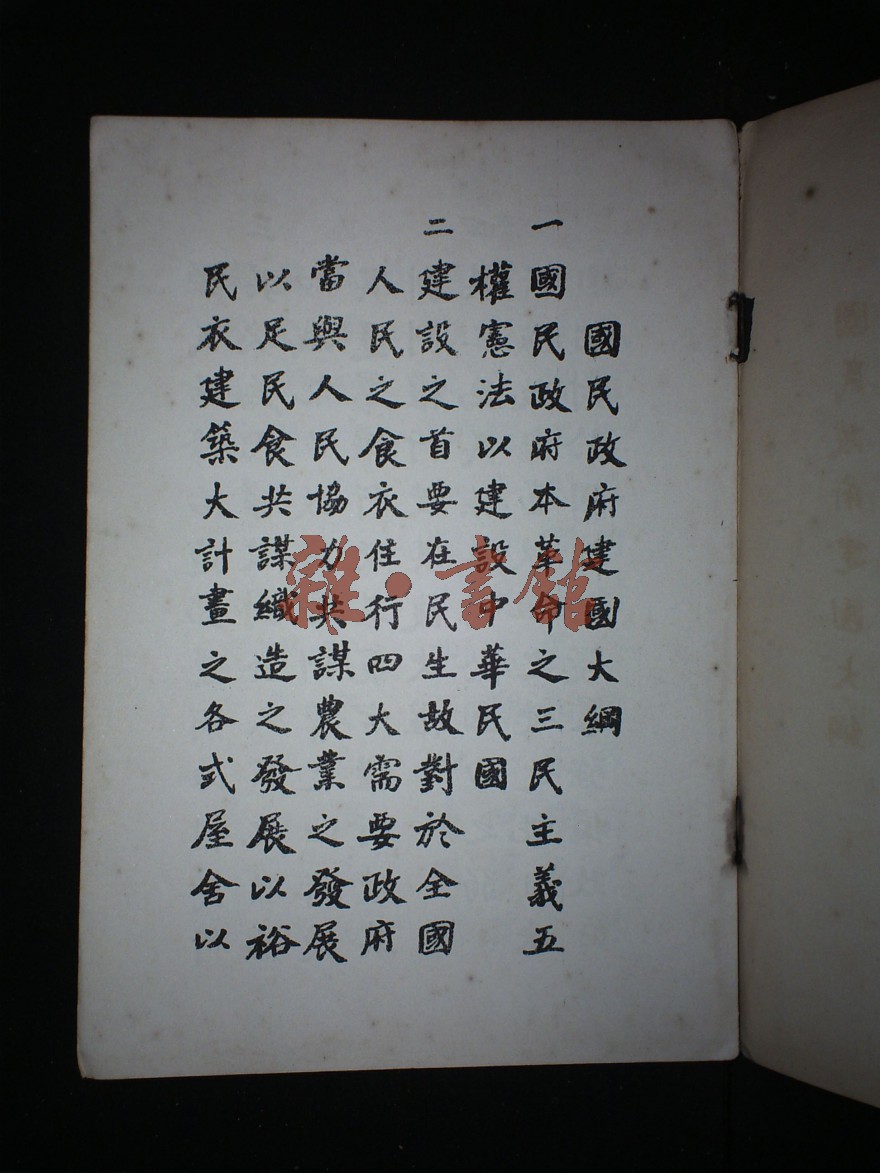 國民政府建國大綱
一 國民政府本革命之三民主義五
權憲法以建設中華民國
二 建設之首要在民生故對於全國
人民之食衣住行四大需要政府
當與人民協力共謀農業之發展
以足民食共謀織造之發展以裕
民衣建築大計畫之各式屋舍以
雜·書館